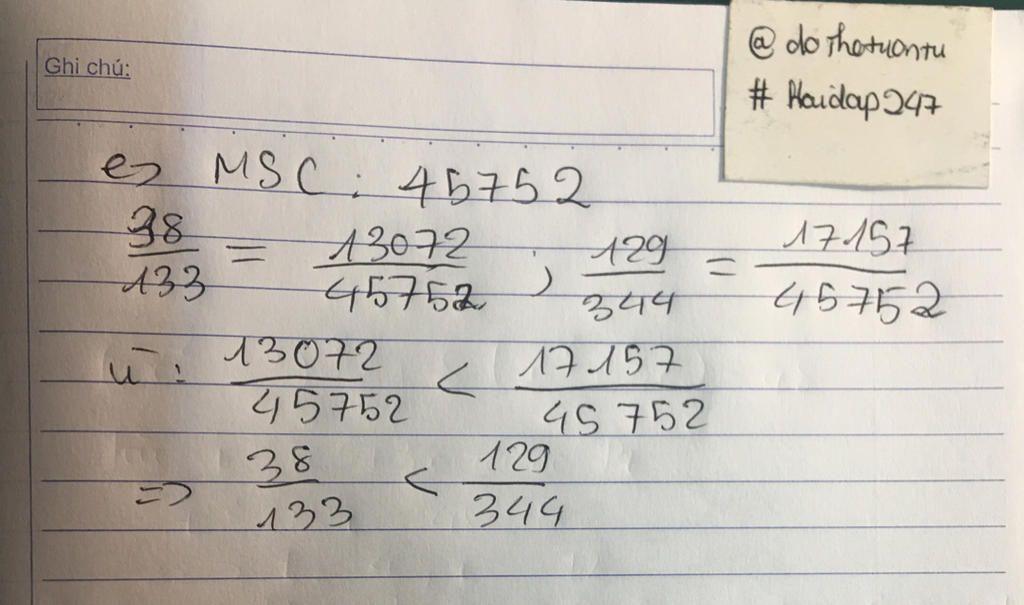 @ dothotuontu
# Hoidap247
Ghi chú:
e) MSC : 45752
38/133 = 13072/45752 ; 129/344 = 17157/45752
Vì : 13072/45752 < 17157/45752
=> 38/133 < 129/344